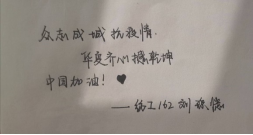 众志成城抗疫情
华夏齐心撼乾坤
中国加油！♥
——纺工162刘